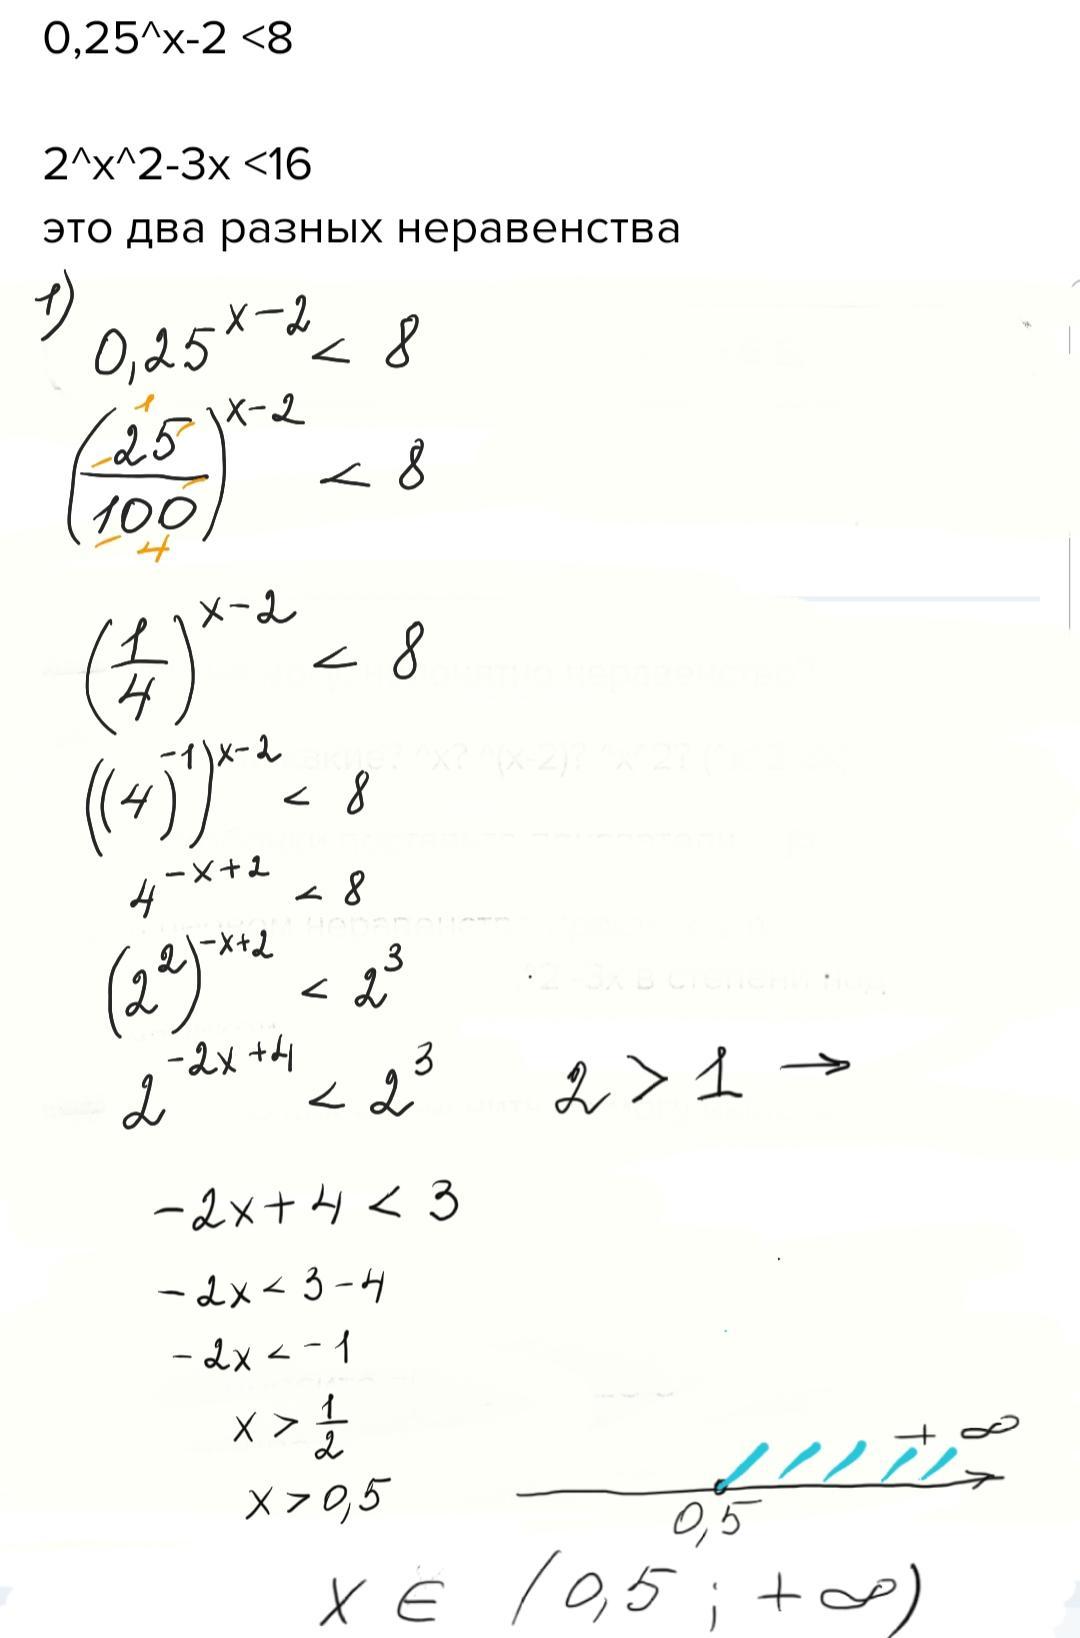 0,25^x-2 <8
2^x^2-3x <16
это два разных неравенства
1)
0,25^{x-2} < 8
(25/100)^{x-2} < 8
1
4
(1/4)^{x-2} < 8
((4)^{-1})^{x-2} < 8
4^{-x+2} < 8
(2^2)^{-x+2} < 2^3
2^{-2x+4} < 2^3 2 > 1 →
-2x+4 < 3
-2x < 3-4
-2x < -1
x > 1/2
x > 0,5
+∞
0,5
x ∈ (0,5 ; +∞)